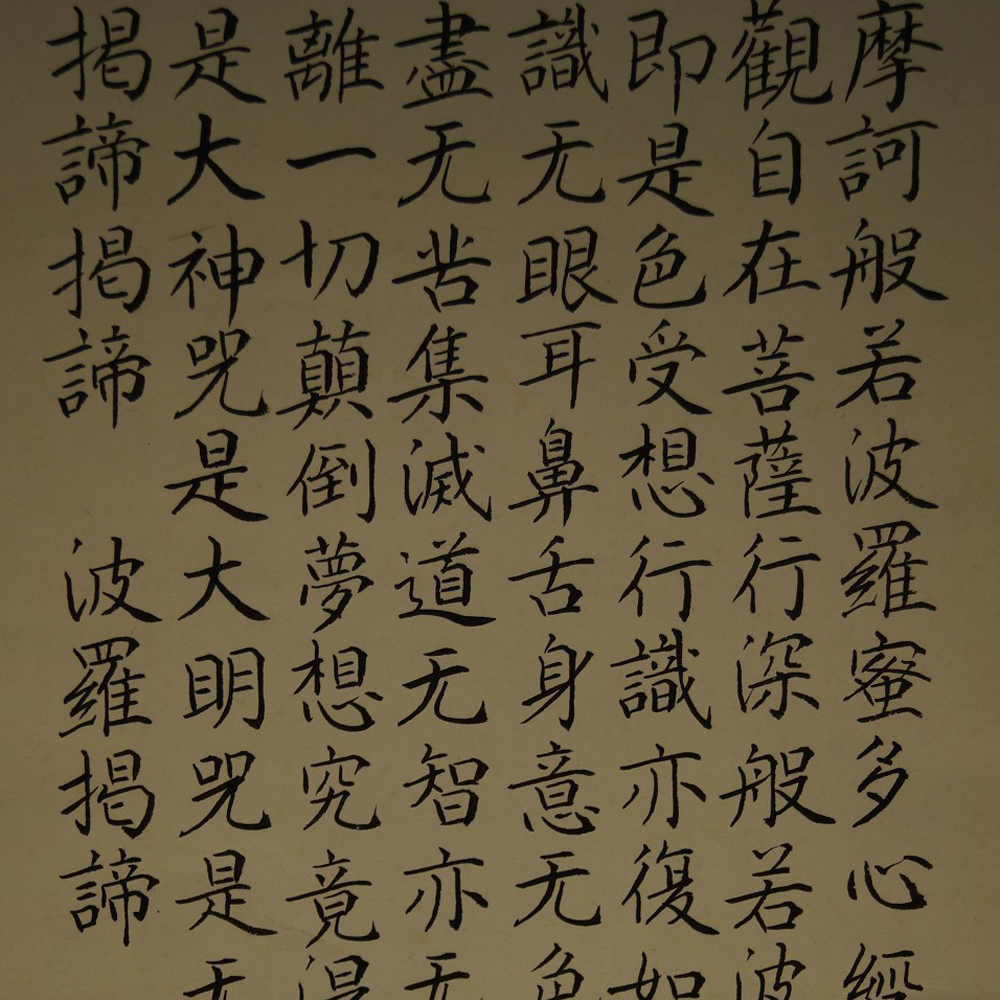 摩訶般若波羅蜜多心經
觀自在菩薩行深般若波
即是色受想行識亦復如
識无眼耳鼻舌身意无色
盡无苦集滅道无智亦无
離一切顛倒夢想究竟涅
是大神咒是大明咒是无
揭諦揭諦 波羅揭諦